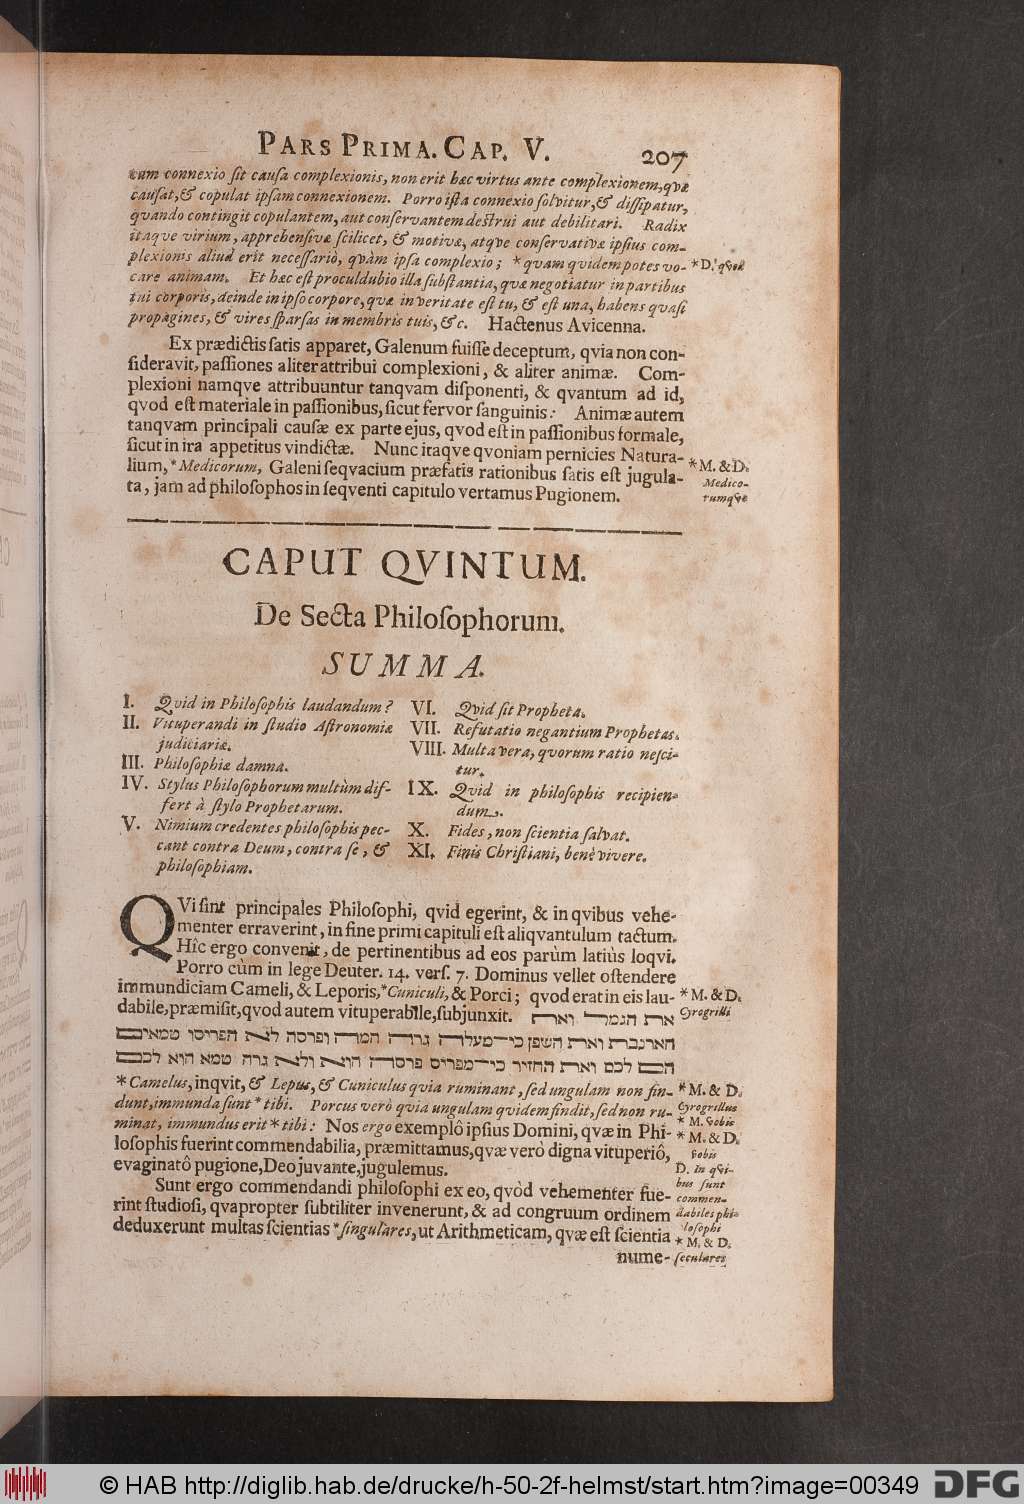 PARS PRIMA. CAP. V. 207
tum connexio sit causa complexionis, non erit hæc virtus ante complexionem, qvæ
causat, & copulat ipsam connexionem. Porro ista connexio solvitur, & dissipatur,
qvando contingit copulantem, aut conservantem destrui aut debilitari. Radix
itaqve virium, apprehensivæ scilicet, & motivæ, atqve conservativæ ipsius com-
plexionis aliud erit necessariò, qvàm ipsa complexio; * qvam qvidem potes vo-
care animam. Et hæc est proculdubio illa substantia, qvæ negotiatur in partibus
tui corporis, deinde in ipso corpore, qvæ in veritate est tu, & est una, habens qvasi
propagines, & vires sparsas in membris tuis, &c. Hactenus Avicenna.
* D. qvod
Ex prædictis satis apparet, Galenum fuisse deceptum, qvia non con-
sideravit, passiones aliter attribui complexioni, & aliter animæ. Com-
plexioni namqve attribuuntur tanqvam disponenti, & qvantum ad id,
qvod est materiale in passionibus, sicut fervor sanguinis: Animæ autem
tanqvam principali causæ ex parte ejus, qvod est in passionibus formale,
sicut in ira appetitus vindictæ. Nunc itaqve qvoniam pernicies Natura-
lium, * Medicorum, Galeni seqvacium præfatis rationibus satis est jugula-
ta, jam ad philosophos in seqventi capitulo vertamus Pugionem.
* M. & D.
Medico-
rumqve
CAPUT QVINTUM.
De Secta Philosophorum.
SUMMA.
I. Qvid in Philosophis laudandum?
II. Vituperandi in studio Astronomiæ
judiciariæ.
III. Philosophiæ damna.
IV. Stylus Philosophorum multùm dif-
fert à stylo Prophetarum.
V. Nimium credentes philosophis pec-
cant contra Deum, contra se, &
philosophiam.
VI. Qvid sit Propheta.
VII. Refutatio negantium Prophetas.
VIII. Multa vera, qvorum ratio nesci-
tur.
IX. Qvid in philosophis recipien-
dum.
X. Fides, non scientia salvat.
XI. Finis Christiani, benè vivere.
QVi sint principales Philosophi, qvid egerint, & in qvibus vehe-
menter erraverint, in fine primi capituli est aliqvantulum tactum.
Hîc ergo convenit, de pertinentibus ad eos parùm latiùs loqvi.
Porro cùm in lege Deuter. 14. vers. 7. Dominus vellet ostendere
immundiciam Cameli, & Leporis, * Cuniculi, & Porci; qvod erat in eis lau-
dabile, præmisit, qvod autem vituperabile, subjunxit. את הגמל ואת
הארנבת ואת השפן כי־מעלה גרה המה ופרסה לא הפריסו טמאים
הם לכם ואת החזיר כי־מפריס פרסה הוא ולא גרה טמא הוא לכם
* Camelus, inqvit, & Lepus, & Cuniculus qvia ruminant, sed ungulam non fin-
dunt, immunda sunt * tibi. Porcus verò qvia ungulam qvidem findit, sed non ru-
minat, immundus erit * tibi: Nos ergo exemplô ipsius Domini, qvæ in Phi-
losophis fuerint commendabilia, præmittamus, qvæ verò digna vituperiô,
evaginatô pugione, Deo juvante, jugulemus.
Sunt ergo commendandi philosophi ex eo, qvòd vehementer fue-
rint studiosi, qvapropter subtiliter invenerunt, & ad congruum ordinem
deduxerunt multas scientias * singulares, ut Arithmeticam, qvæ est scientia
nume-
* M. & D.
Cyrogrilli
* M. & D.
Cyrogrillus
* M. vobis
* M. & D.
vobis
D. in qvi-
bus sunt
commen-
dabiles phi-
losophi
* M. & D.
seculares
© HAB http://diglib.hab.de/drucke/h-50-2f-helmst/start.htm?image=00349
DFG